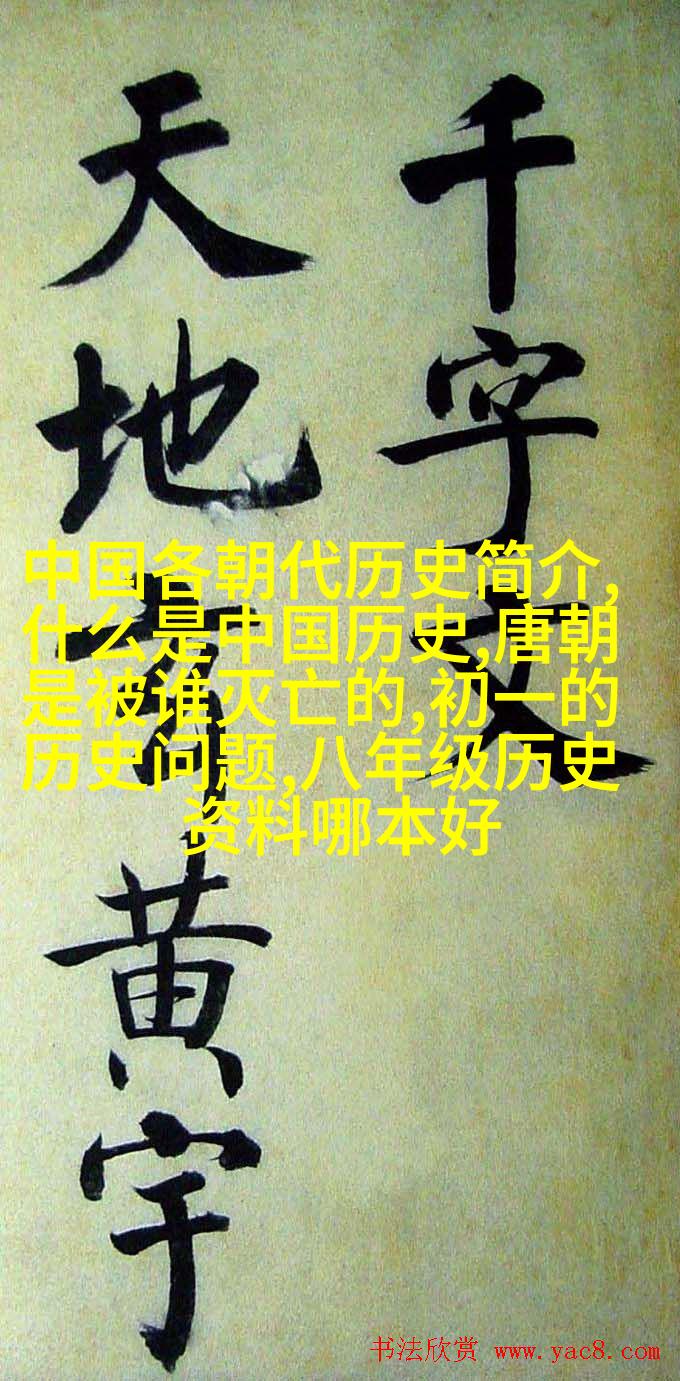 千字文
天地黄宇
中国各朝代历史简介,
什么是中国历史,唐朝
是被谁灭亡的,初一的
历史问题,八年级历史
资料哪本好
书法欣赏 www.yac8.com